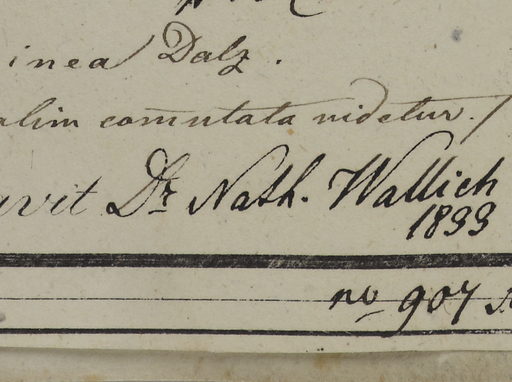 inea Dalz.
alim commutata videtur.
avit Dr. Nath. Wallich
1833
no 907